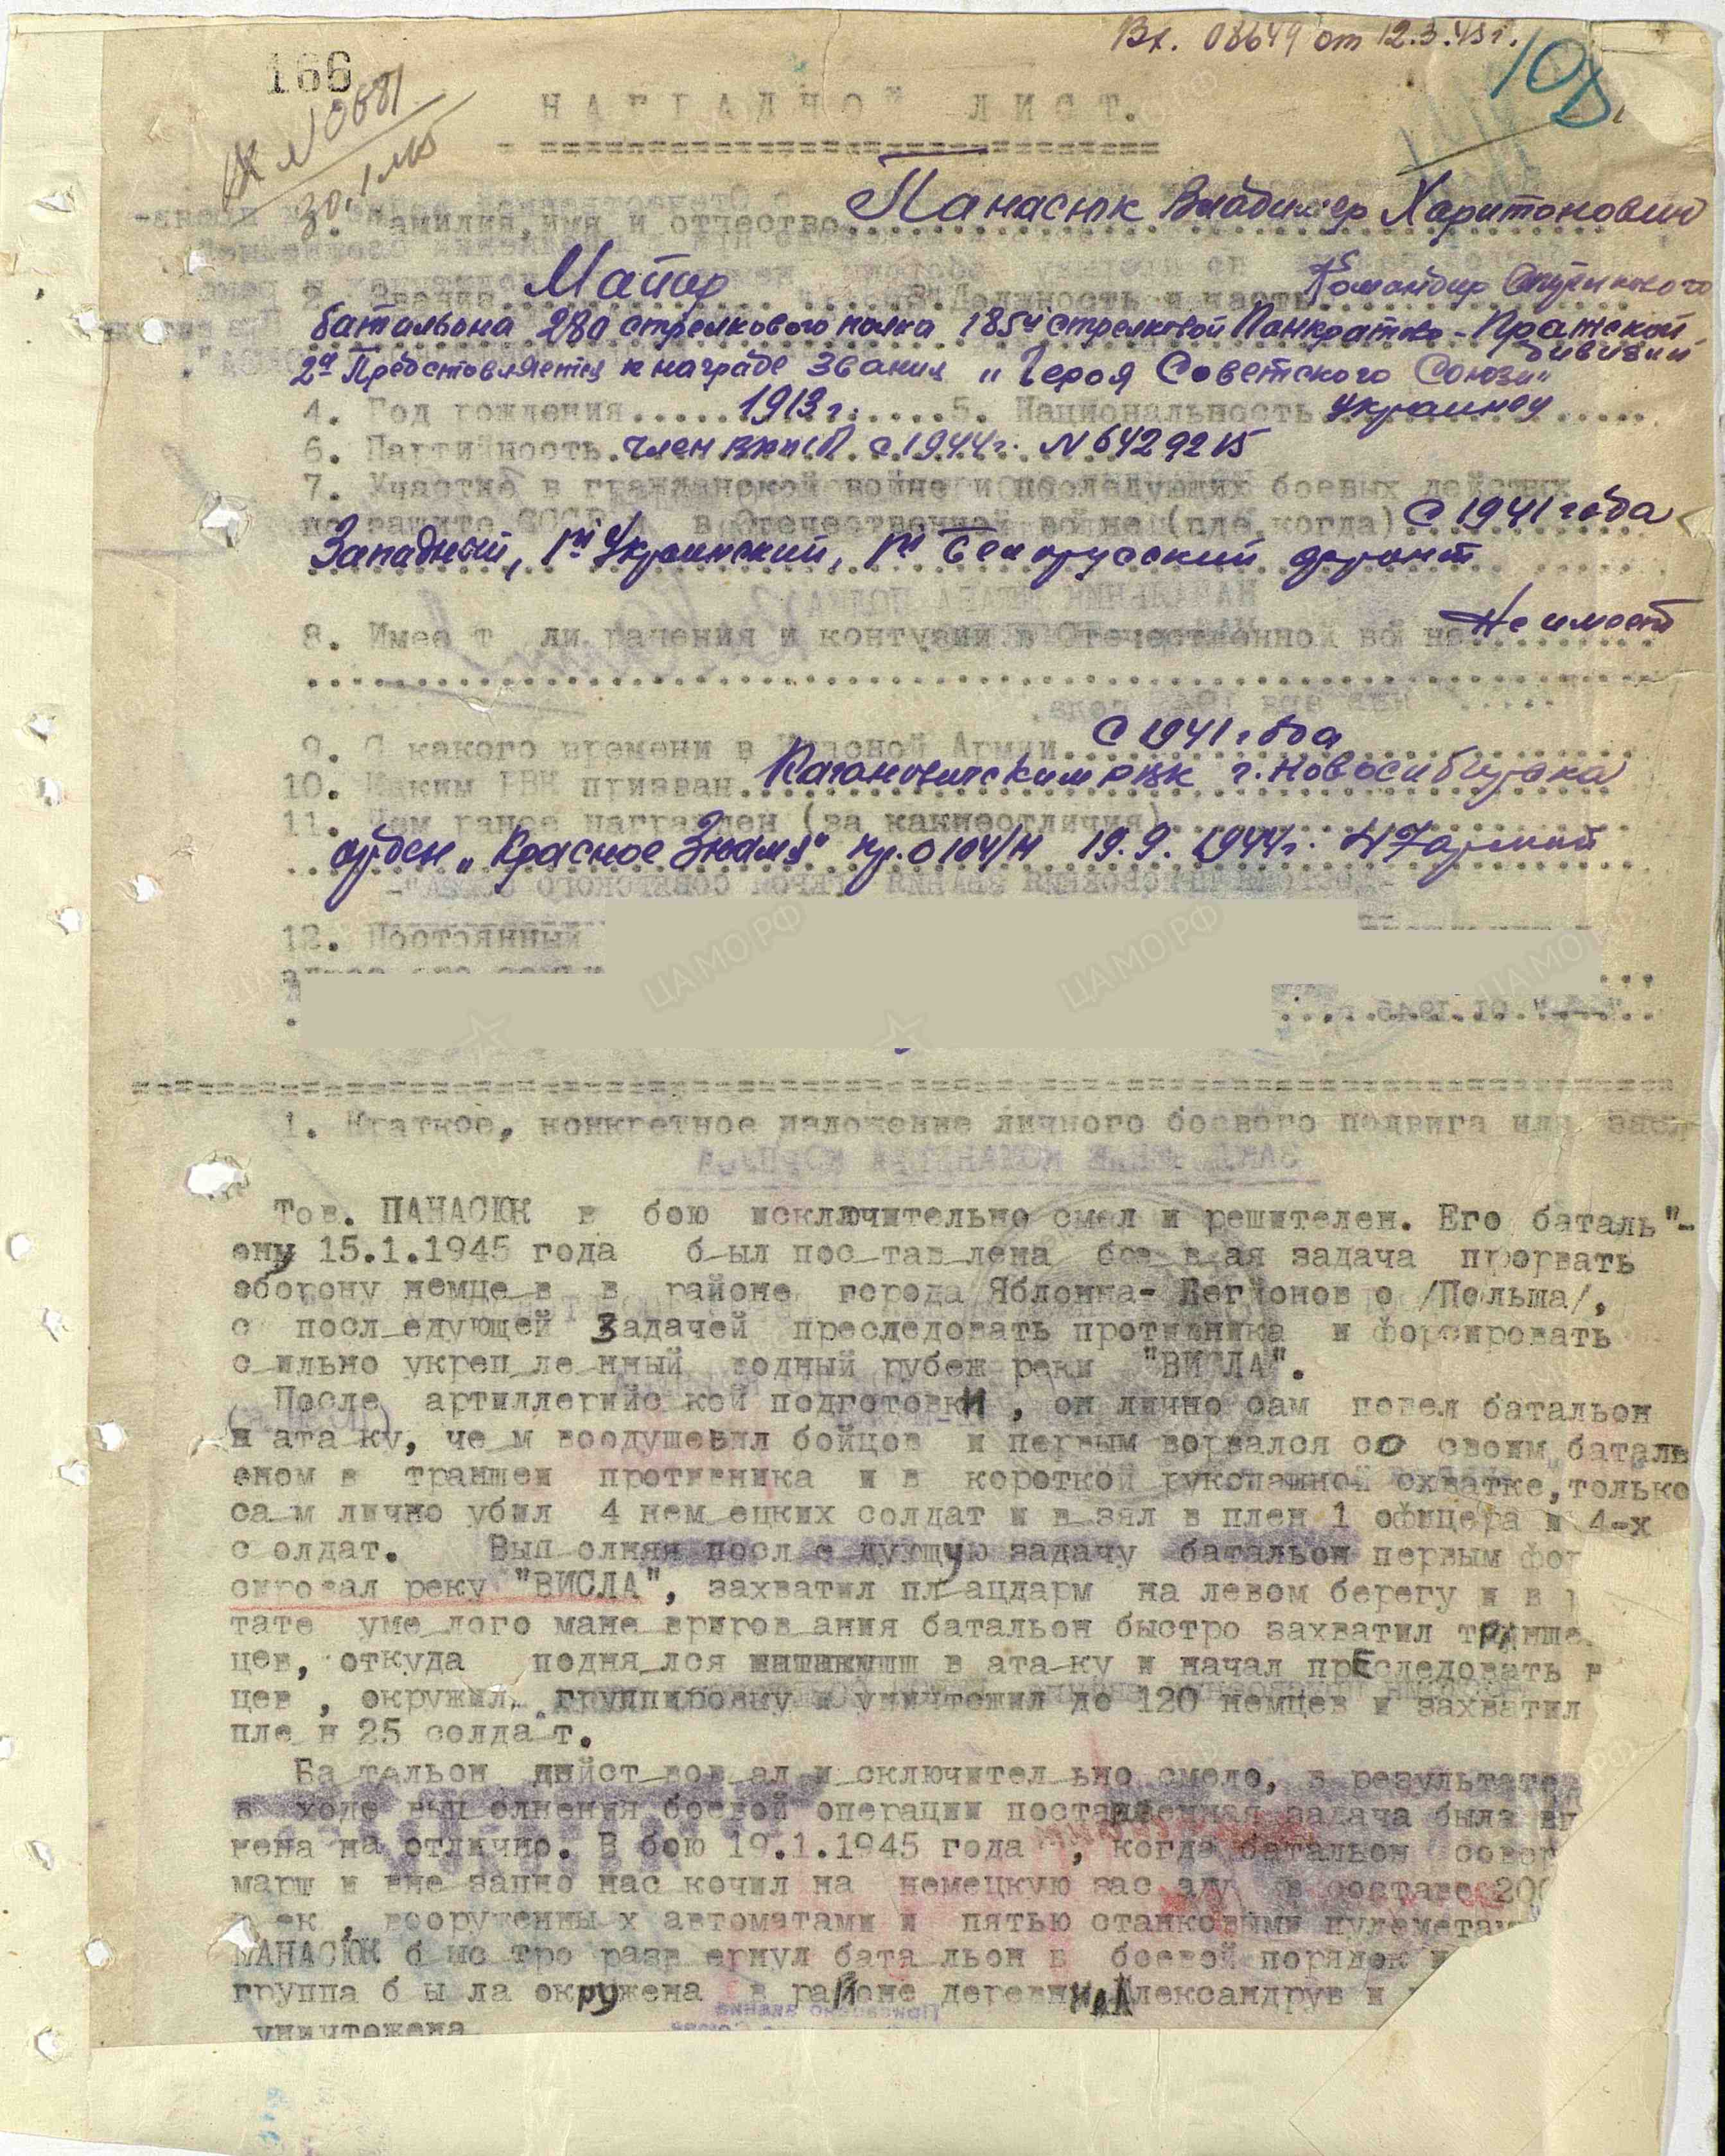 Вх. 08649 от 12.3.45г.
166
НАГРАДНОЙ ЛИСТ.
амилия, имя и отчество Панасюк Владимир Харитонович
2. Звание Майор 3. Должность и часть Командир стрелкового
батальона 280 стрелкового полка 185й стрелковой Панкратово-Пражской
дивизии
2а Представляется к награде звания „Героя Советского Союза"
4. Год рождения.....1913г.....5. Национальность украинец
6. Партийность. член ВКП(б). с 1944г. N 6429215
7. Участие в гражданской войне и последующих боевых действиях
по защите СССР и в Отечественной войне (где когда) с 1941 года
Западный, 1й Украинский, 1й Белорусский фронт
8. Имее т ли ранения и контузии в Отечественной вой не Не имеет
9. С какого времени в Красной Армии С 1941 года
10. Каким РВК призван Кагановическим рвк г. Новосибирска
11. Чем ранее награжден (за какие отличия)
орден „Красное Знамя" пр. 0104/н 19.9.1944г. 47 армии
12. Постоянный
1. Краткое, конкретное изложение личного боевого подвига или засл
Тов. ПАНАСЮК в бою исключительно смел и решителен. Его баталь"-
ону 15.1.1945 года был поставлена боевая задача прорвать
оборону немцев в районе города Яблонна- Легионово /Польша/,
с последующей задачей преследовать противника и форсировать
сильно укрепленный водный рубеж реки "ВИСЛА".
После артиллерийской подготовки, он лично сам повел батальон
в атаку, чем воодушевил бойцов и первым ворвался со своим баталь
оном в траншеи противника и в короткой рукопашной схватке, только
сам лично убил 4 немецких солдат и взял в плен 1 офицера и 4-х
солдат. Выполняя последующую задачу батальон первым фор
сировал реку "ВИСЛА", захватил плацдарм на левом берегу и в
тате умелого маневрирования батальон быстро захватил транше
цев, откуда поднялся в атаку и начал прЕследовать
цев, окружил группировку и уничтожил до 120 немцев и захватил
плен 25 солдат.
Батальон действовал исключительно смело, в результате
в ходе выполнения боевой операции поставленная задача была вы
нена на отлично. В бою 19.1.1945 года, когда батальон совер
марш и внезапно наскочил на немецкую засаду в составе 200
век, вооруженных автоматами и пятью станковыми пулеметам
МАНАСЮК быстро развернул батальон в боевой порядок и
группа была окружена в районе деревни Александрув и
уничтожена